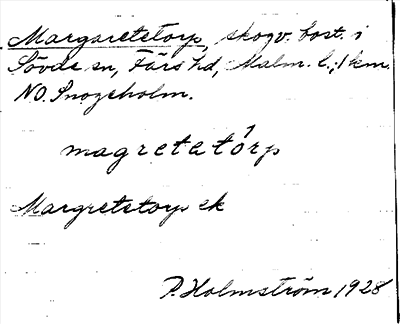 Margaretetorp, skogv. bost. i
Sövde sn, Färs hd, Malm. l.; 1 km.
NO. Snogeholm.
magretetórp
Margretetorp ek
P. Holmström 1928